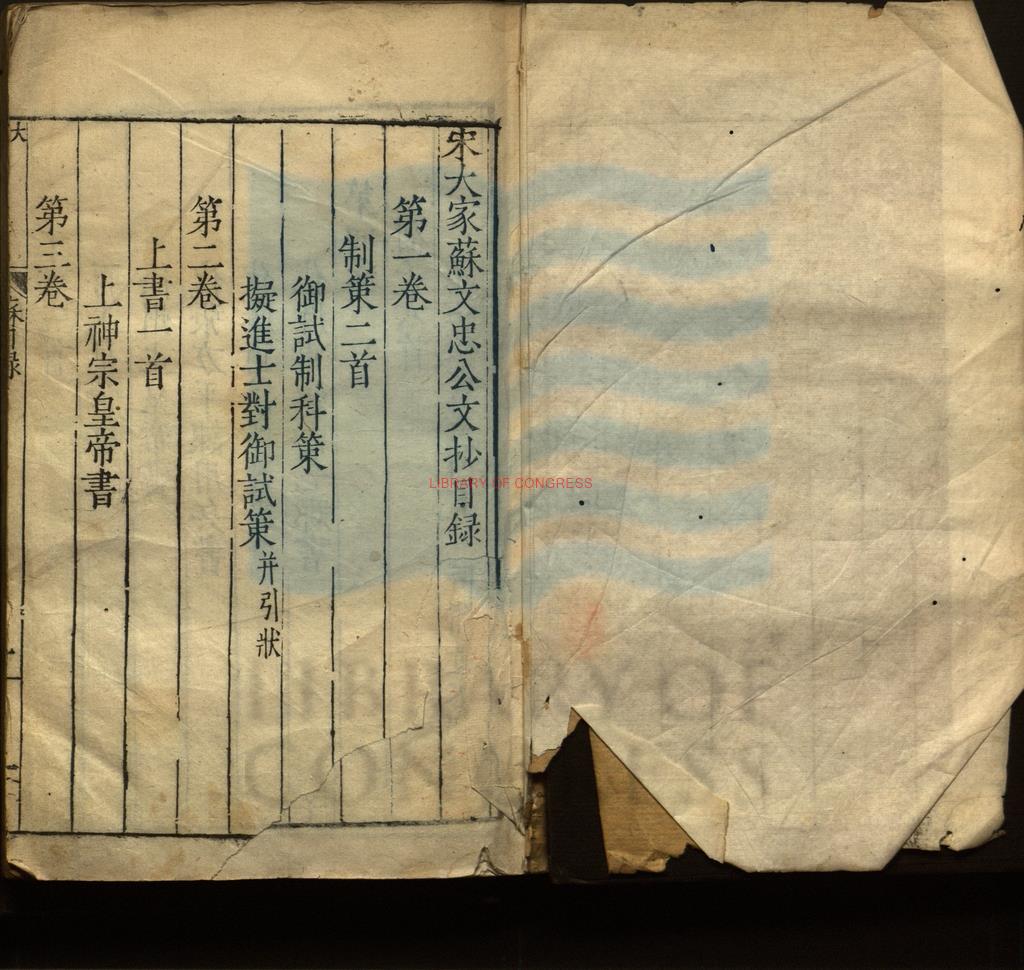 宋大家蘇文忠公文抄目録
第一卷
制策二首
御試制科策
擬進士對御試策并引狀
第二卷
上書一首
上神宗皇帝書
第三卷
LIBRARY OF CONGRESS